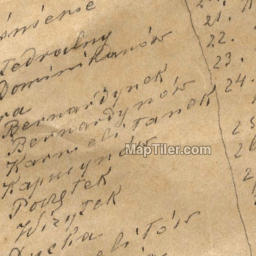 śnienie
tedralny
Dominikanów
ra
Bernardynek
Bernardynów
Karmelitanek
Kapucynów
Powstek
Wizytek
21.
22.
23.
24.
25
26
MapTiler.com